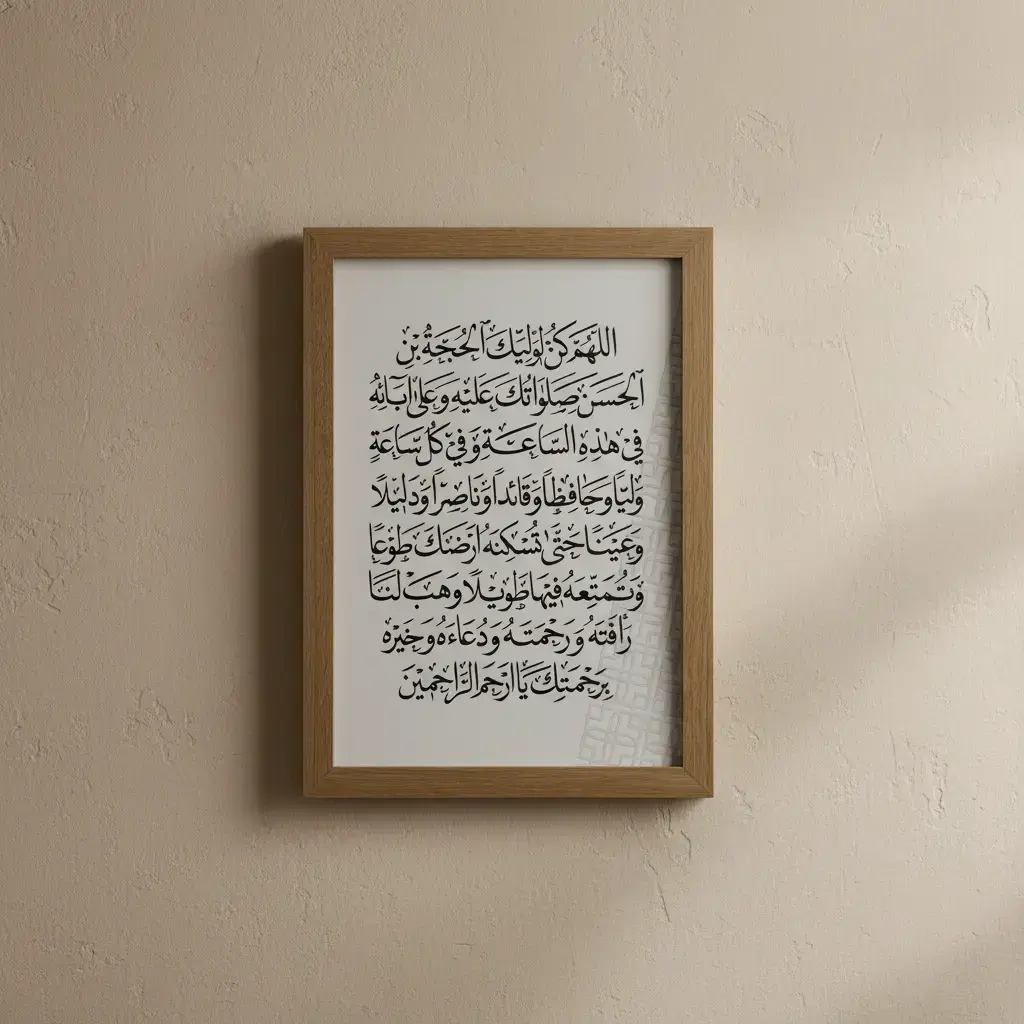 اللّٰهُمَّ كُنْ لِوَلِيِّكَ ٱلْحُجَّةِ بْنِ
ٱلْحَسَنِ صَلَوَاتُكَ عَلَيْهِ وَعَلىٰ اٰبَائِهِ
فِيْ هٰذِهِ السَّاعَةِ وَفِيْ كُلِّ سَاعَةٍ
وَلِيًّا وَحَافِظًا وَقَائِداً وَنَاصِرًا وَدَلِيْلًا
وَعَيْنًا حَتّٰى تُسْكِنَهُ اَرْضَكَ طَوْعًا
وَتُمَتِّعَهُ فِيْهَا طَوِيْلًا وَهَبْ لَنَا
رَأْفَتَهُ وَرَحْمَتَهُ وَدُعَاءَهُ وَخَيْرَهُ
بِرَحْمَتِكَ يَا اَرْحَمَ الرَّاحِمِيْنَ